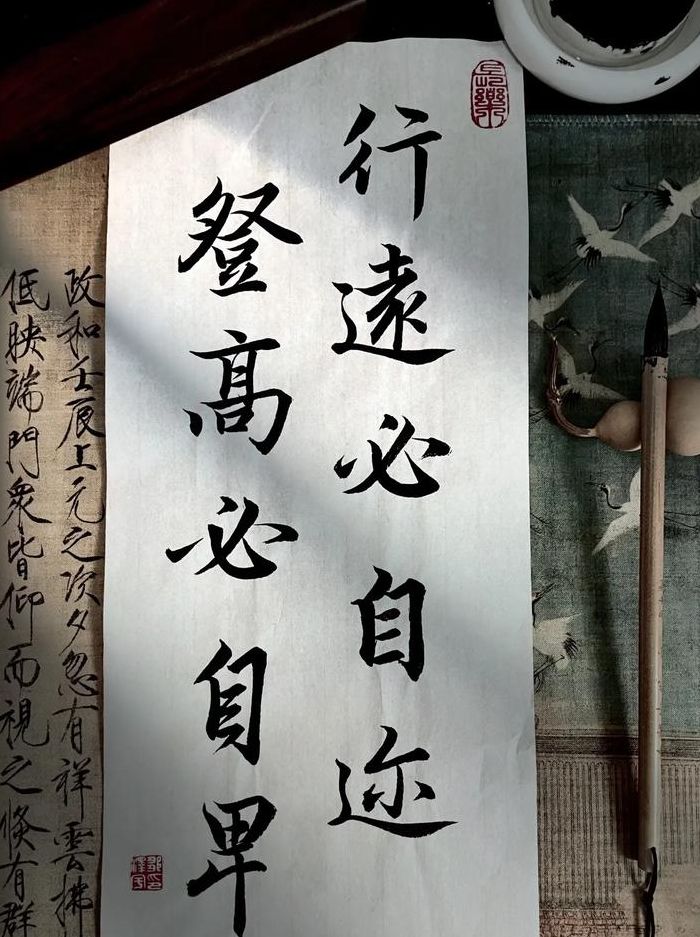 行遠必自迩
登高必自卑
長樂
政和壬辰上元之次夕忽有祥雲拂
低映端門衆皆仰而視之倏有群